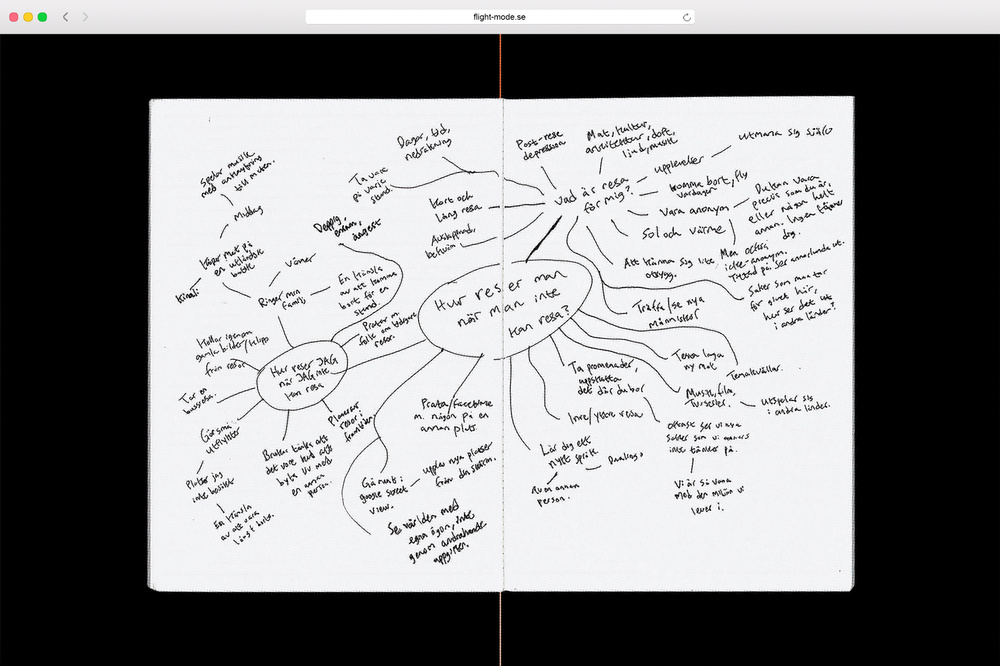 flight-mode.se
Hur reser man
när man inte
kan resa?
Vad är resa
för mig?
Post-rese
depression
Mat, kultur,
arkitektur, doft,
ljud, musik
upplevelser
utmana sig själv
komma bort, fly
vardagen
Vara anonym
Du kan vara
precis som du är,
eller någon helt
annan.
Ingen känner
dig.
Men också
icke-anonym.
på ser annorlunda ut.
Sol och värme
Att känna sig lite
otrygg.
Saker som man tar
för givet här,
hur ser det ut
i andra länder?
Dagar, tid,
nedräkning
Ta vara
på varje
stund.
Kort och
lång resa
Avkoppland,
bekväm
Träffa/se nya
människor
Testa laga
ny mat
Temakvällar.
Musik, film,
TV-serier.
utspelar sig
i andra länder.
Ta promenader,
uppskatta
det där du bor
oftast ser vi nya
saker som vi annars
inte tänker på.
Vi är så vana
med den miljön vi
lever i.
Inre/yttre resa
Lär dig ett
nytt språk
Duolingo
Av en annan
person.
Prata/facetime
m. någon på en
annan plats.
Gå runt i
google street
view.
upplev nya platser
från din skärm.
Se världen med
egna ögon, inte
genom andrahands
uppgifter.
Hur reser JAG
när JAG inte
kan resa
Ringer min
familj
vänner
En känsla
av att komma
bort för en
stund.
Deppig,
ensam,
ångest
Pratar m.
folk om tidigare
resor.
Köper mat på
en utländsk
butik
Kinesi
Middag
Spelar musik
med anknytning
till maten.
Kollar igenom
gamla bilder/klipp
från resor
Tar en
bussresa.
Gör små
utflykter
Platser jag
inte besökt
En känsla
av att vara
långt borta.
Brukar tänka att
det vore kul att
byta liv med
en annan
person.
Planerar
resor i
framtiden.